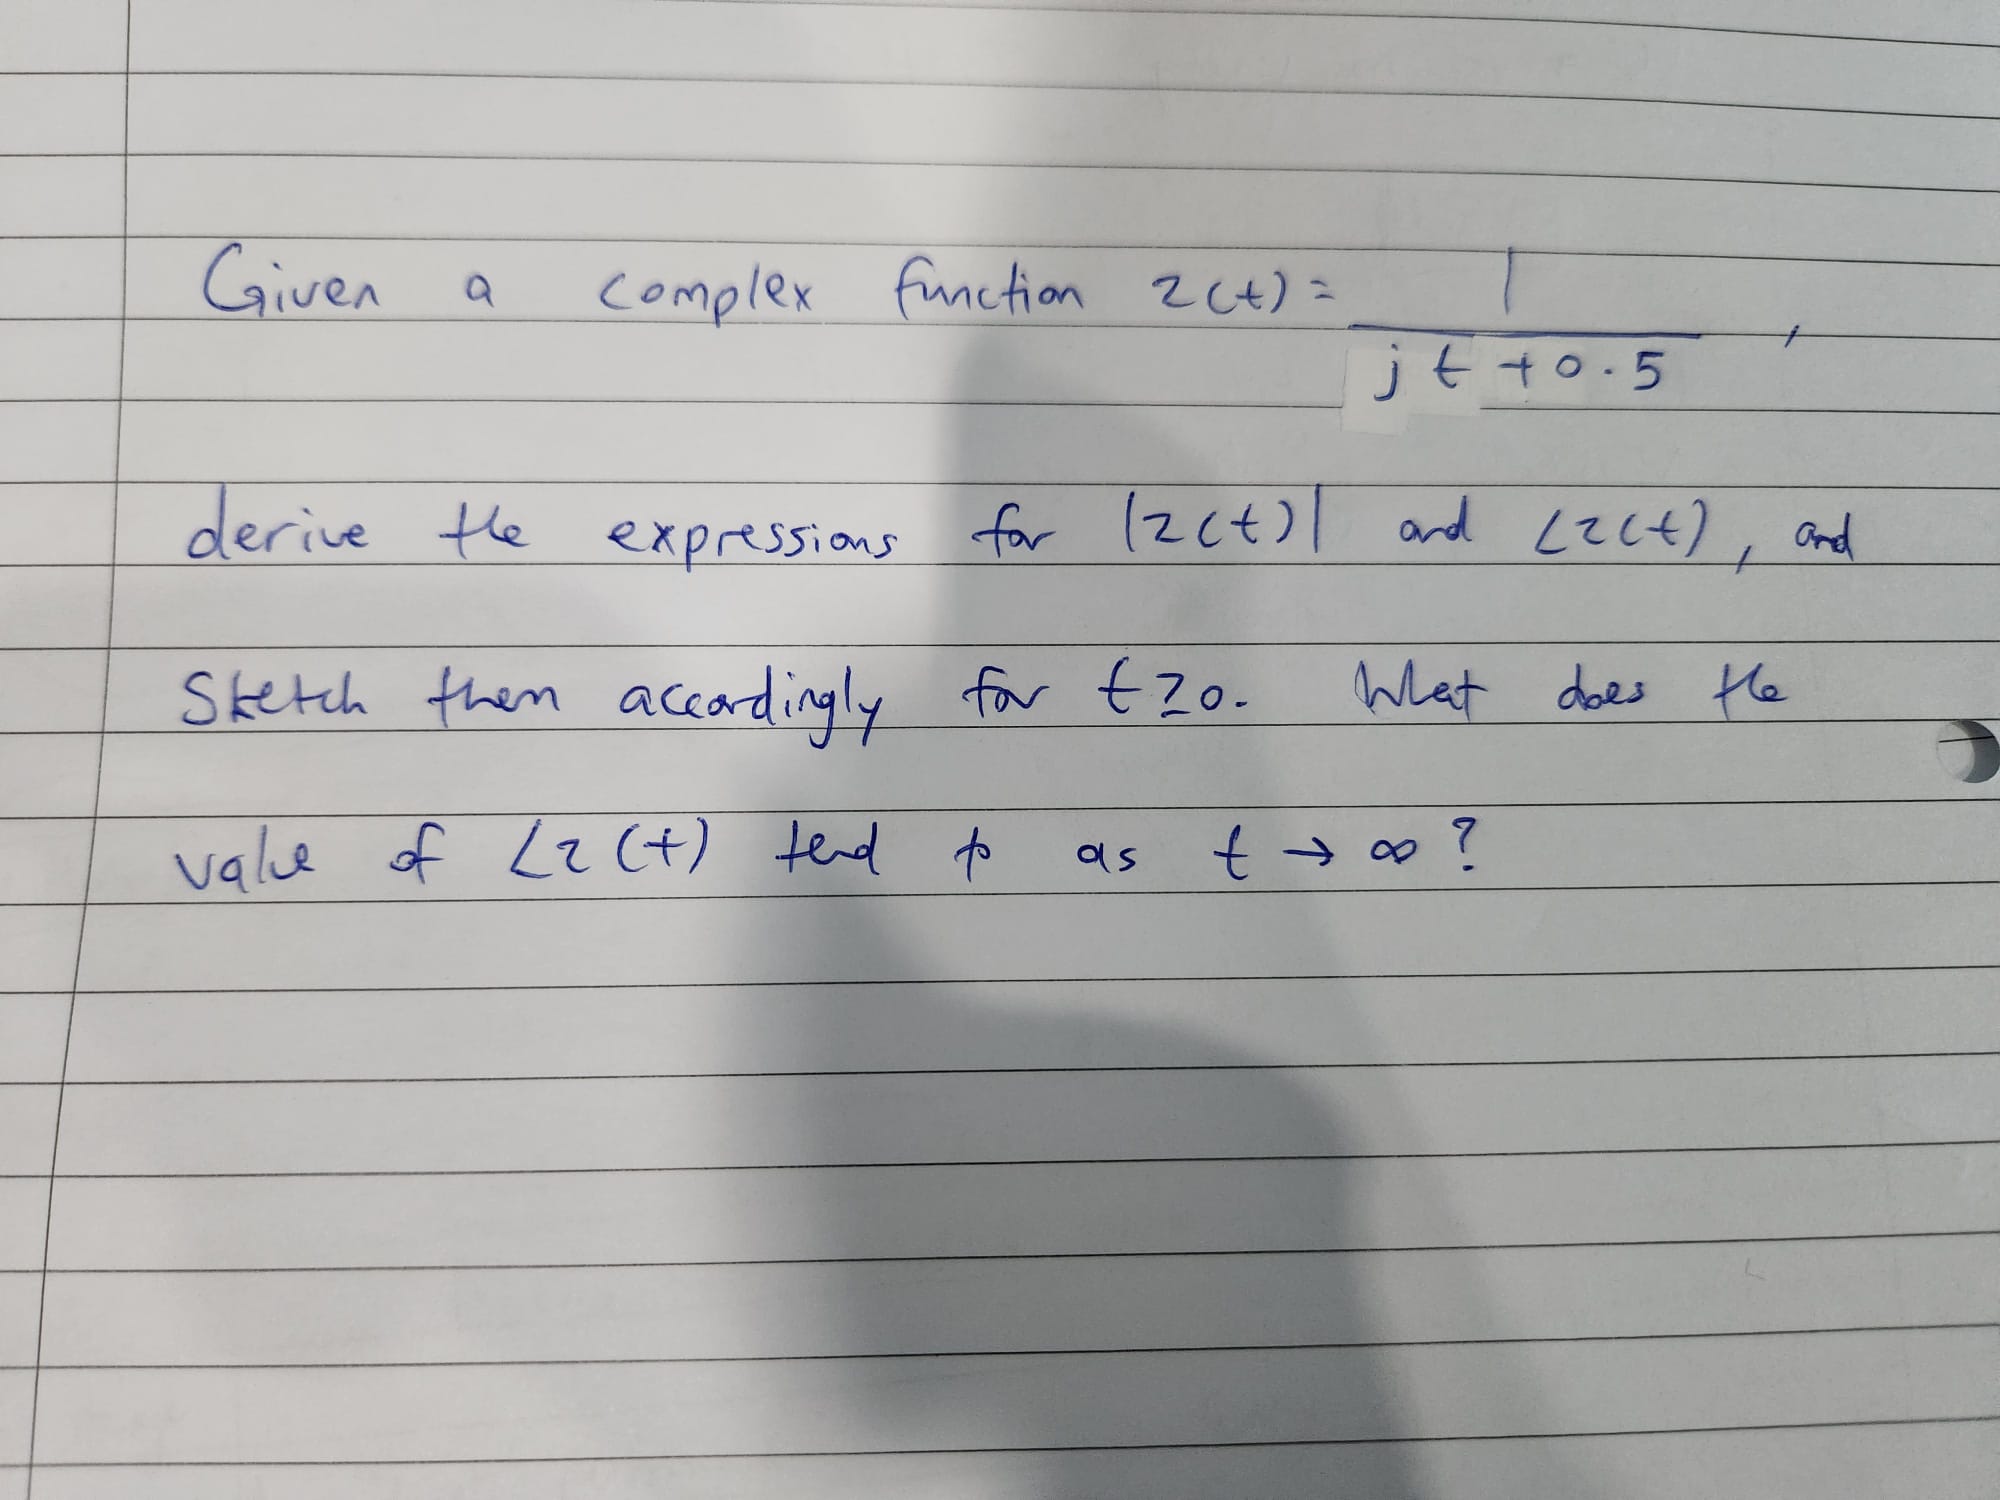 Given a complex function z(t) = 1 / (jt + 0.5),
derive the expressions for |z(t)| and ∠z(t), and
Sketch them accordingly for t ≥ 0. What does the
value of ∠z(t) tend to as t → ∞ ?